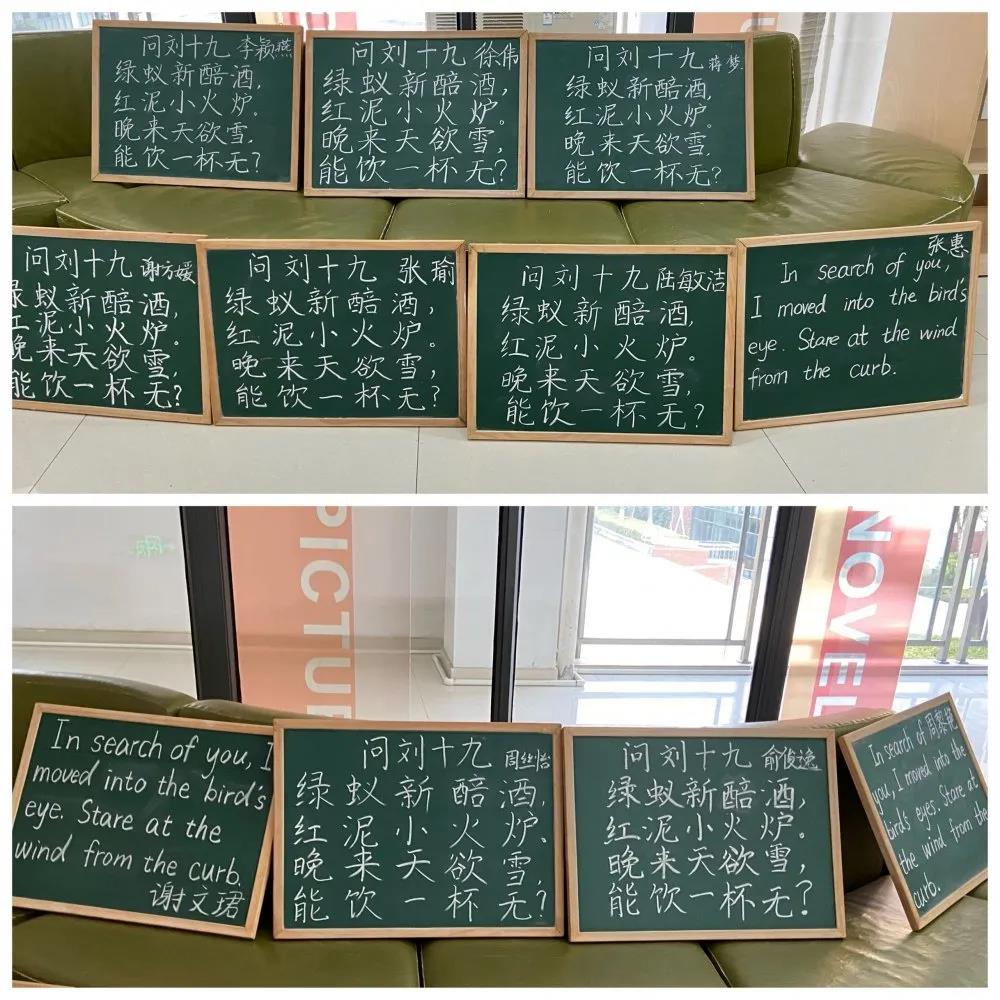 问刘十九 李颖燕
绿蚁新醅酒,
红泥小火炉。
晚来天欲雪,
能饮一杯无?
问刘十九 徐伟
绿蚁新醅酒,
红泥小火炉。
晚来天欲雪,
能饮一杯无?
问刘十九 蒋梦
绿蚁新醅酒,
红泥小火炉。
晚来天欲雪,
能饮一杯无?
问刘十九 谢方媛
绿蚁新醅酒,
红泥小火炉。
晚来天欲雪,
能饮一杯无?
问刘十九 张瑜
绿蚁新醅酒,
红泥小火炉。
晚来天欲雪,
能饮一杯无?
问刘十九 陆敏洁
绿蚁新醅酒,
红泥小火炉。
晚来天欲雪,
能饮一杯无?
张惠
In search of you,
I moved into the bird's
eye. Stare at the wind
from the curb.
PICTURE
NOVEL
In search of you, I
moved into the bird's
eye. Stare at the
wind from the curb
谢文珺
问刘十九
绿蚁新醅酒,
红泥小火炉、
晚来天欲雪,
能饮一杯无?
问刘十九 俞俊逸
绿蚁新醅酒,
红泥小火炉。
晚来天欲雪,
能饮一杯无?
In search of
you, I moved into the
bird's eyes. Stare at
the wind from the
curb.